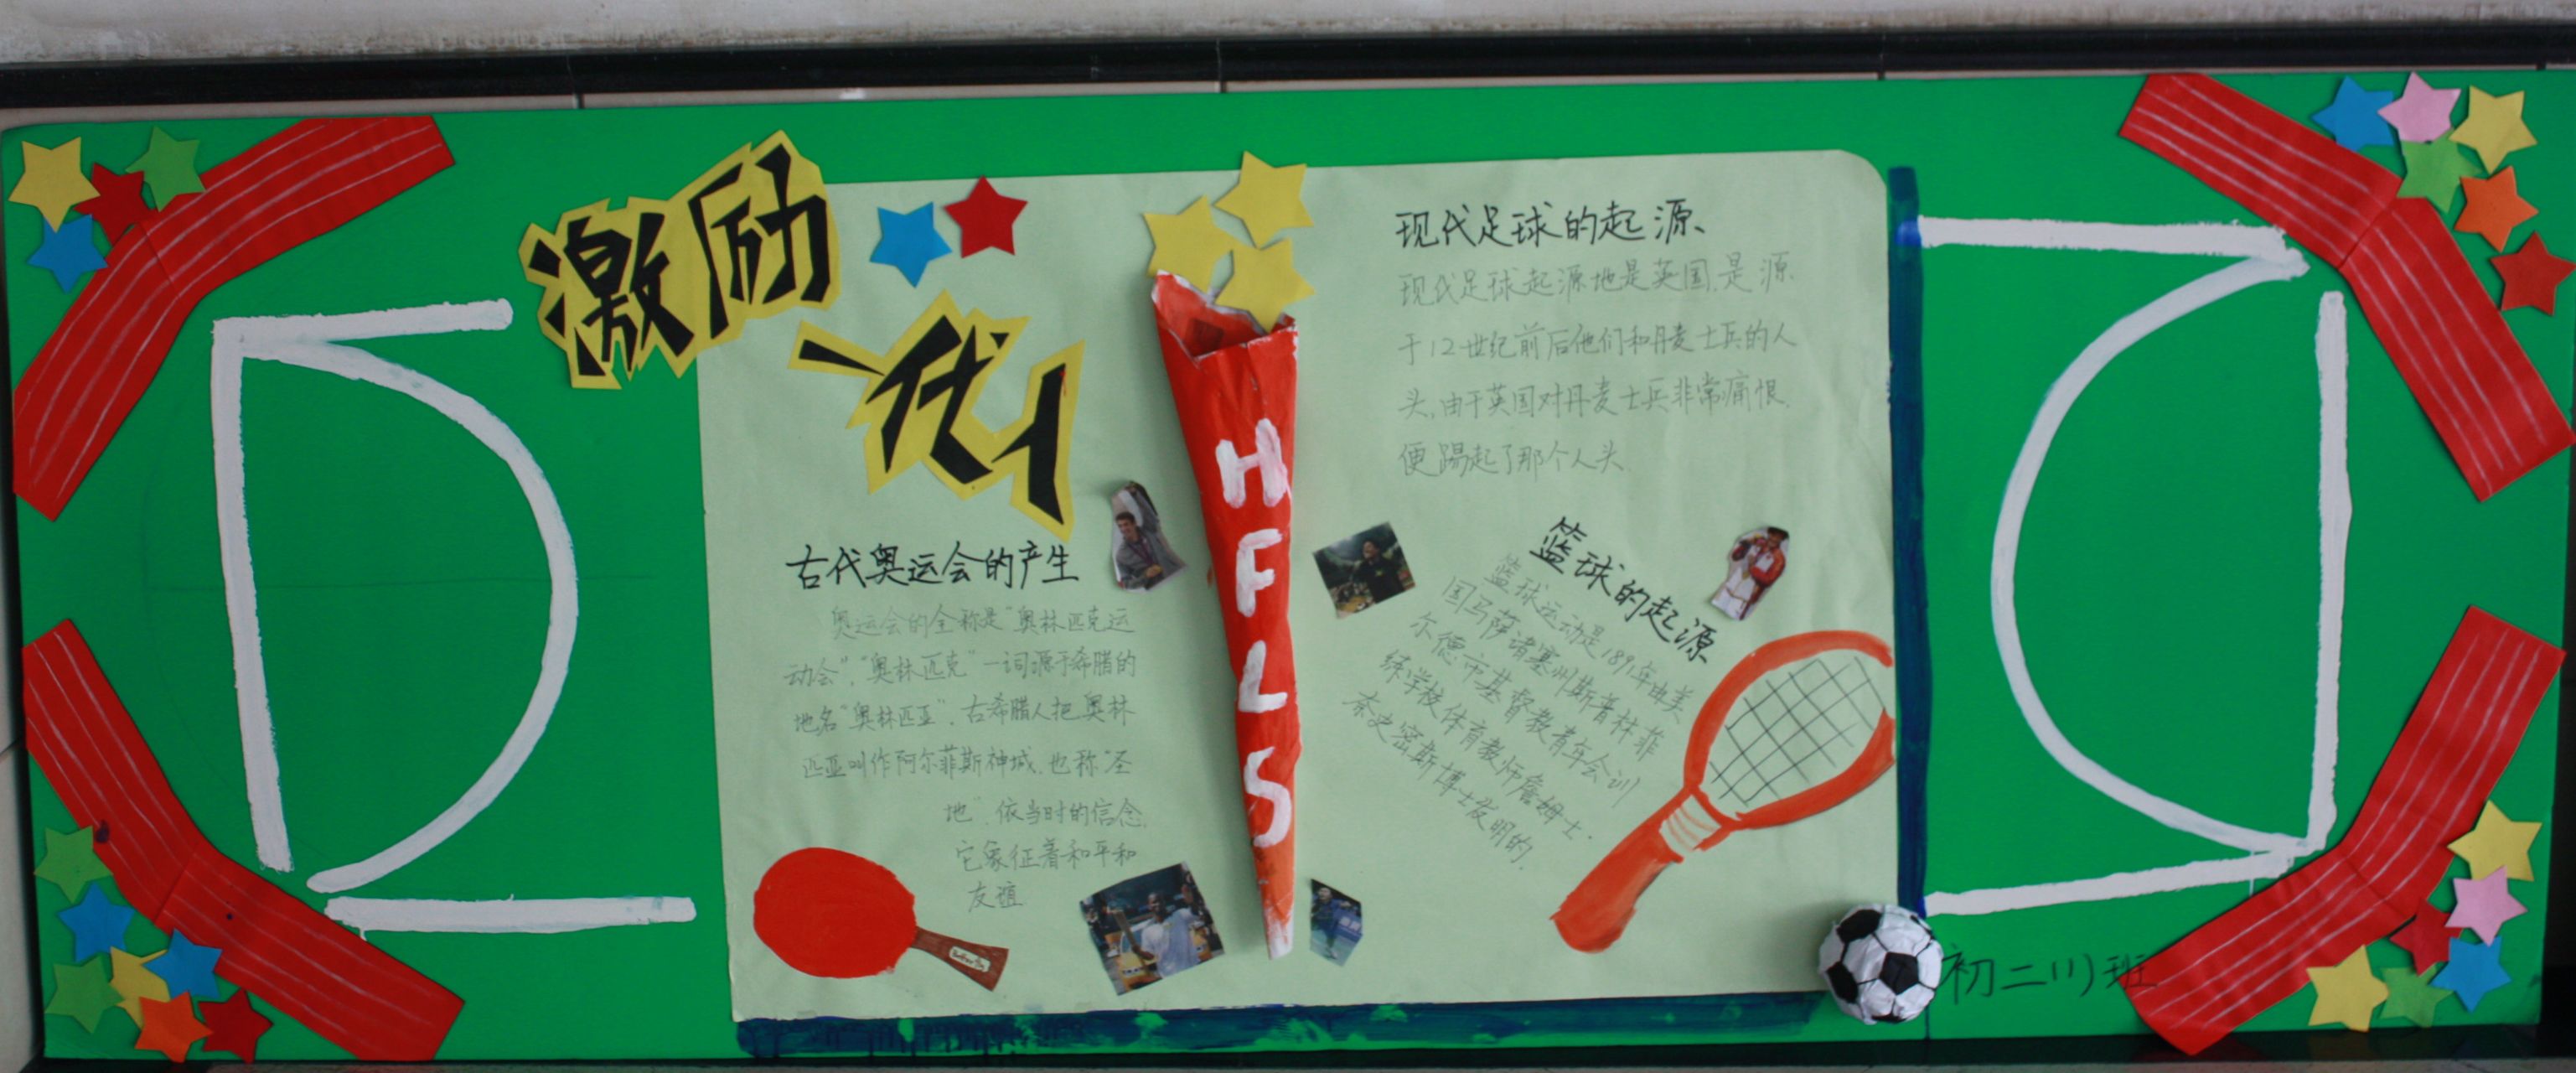 激励
一代人
古代奥运会的产生
奥运会的全称是"奥林匹克运
动会","奥林匹克"一词源于希腊的
地名"奥林匹亚".古希腊人把奥林
匹亚叫作阿尔菲斯神城.也称"圣
地".依当时的信念.
它象征着和平和
友谊
HFLS
现代足球的起源
现代足球起源地是英国.是源
于12世纪前后他们和丹麦士兵的人
头.由于英国对丹麦士兵非常痛恨.
便踢起了那个人头
篮球的起源
篮球运动是1891年由美
国马萨诸塞州斯普林菲
尔德市基督教青年会训
练学校体育教师詹姆士·
奈史密斯博士发明的.
初二(1)班